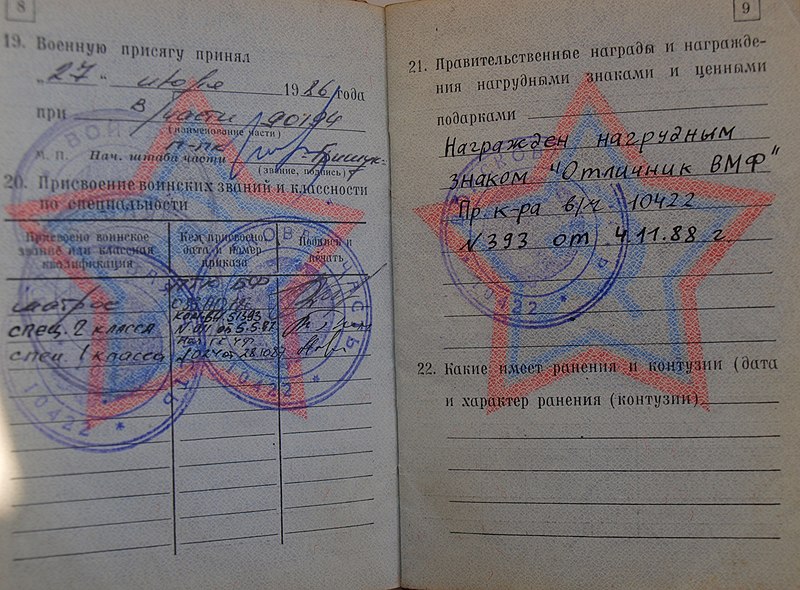 8
19. Военную присягу принял
„27"
1986 года
при в/части 90194
(наименование части)
М. П. Нач. штаба части
(звание, подпись)
20. Присвоение воинских званий и классности
по специальности
Присвоено воинское звание или классная квалификация
Кем присвоено, дата и номер приказа
Подпись и печать
матрос
спец. 2 класса
спец. 1 класса
ВОЙСКОВАЯ ЧАСТЬ
* 10422 *
9
21. Правительственные награды и награжде-
ния нагрудными знаками и ценными
подарками
Награжден нагрудным
знаком "Отличник ВМФ"
Пр. к-ра в/ч 10422
N 393 от 4.11.88 г.
10422 *
22. Какие имеет ранения и контузии (дата
и характер ранения (контузии)